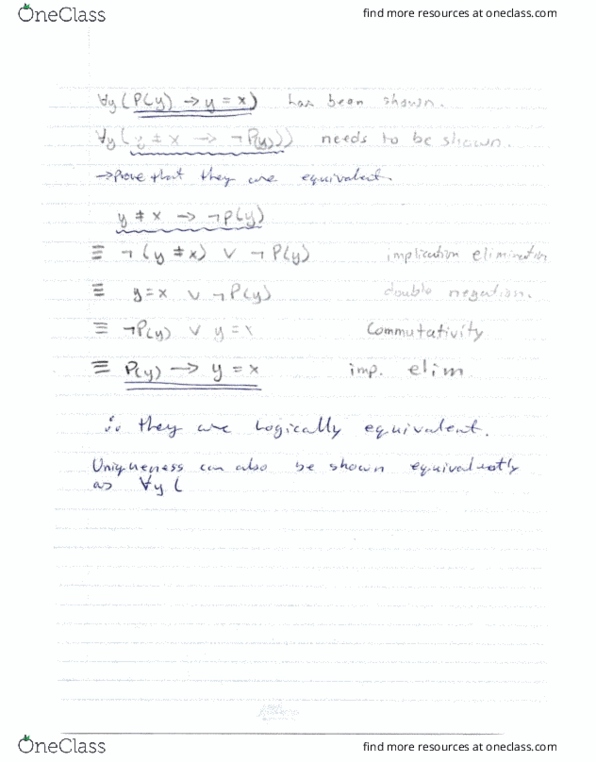 OneClass
find more resources at oneclass.com
∀y(P(y) → y = x) has been shown.
∀y(y ≠ x → ¬P(y)) needs to be shown.
→ Prove that they are equivalent.
y ≠ x → ¬P(y)
≡ ¬(y ≠ x) ∨ ¬P(y) implication elimination
≡ y = x ∨ ¬P(y) double negation.
≡ ¬P(y) ∨ y = x Commutativity
≡ P(y) → y = x imp. elim
∴ they are logically equivalent.
Uniqueness can also be shown equivalently
as ∀y (
OneClass
find more resources at oneclass.com